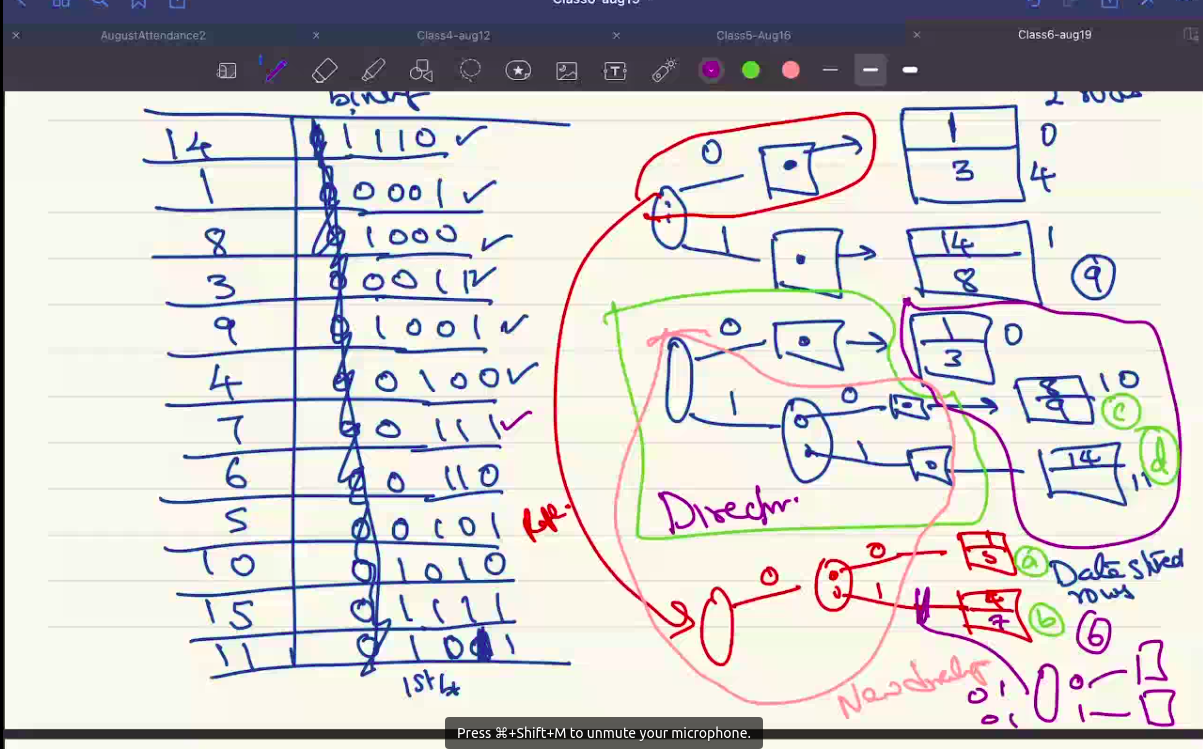 Class6-aug19
AugustAttendance2
Class4-aug12
Class5-Aug16
Class6-aug19
binary
2 rows
14 0 1110
1 0 0001
8 0 1000
3 0 0011
9 0 1001
4 0 0100
7 0 0111
6 0 0110
5 0 0101
10 0 1010
15 0 1111
11 0 1001
1st
0
1
1 0
3 4
14 1
8
9
0
1
0
1
1 0
3
8 10
9
c
14 11
d
Director
0
0
1
1
5
a
4
7
b
Data stored
rows
6
New
01
01
0
1
Press ⌘+Shift+M to unmute your microphone.